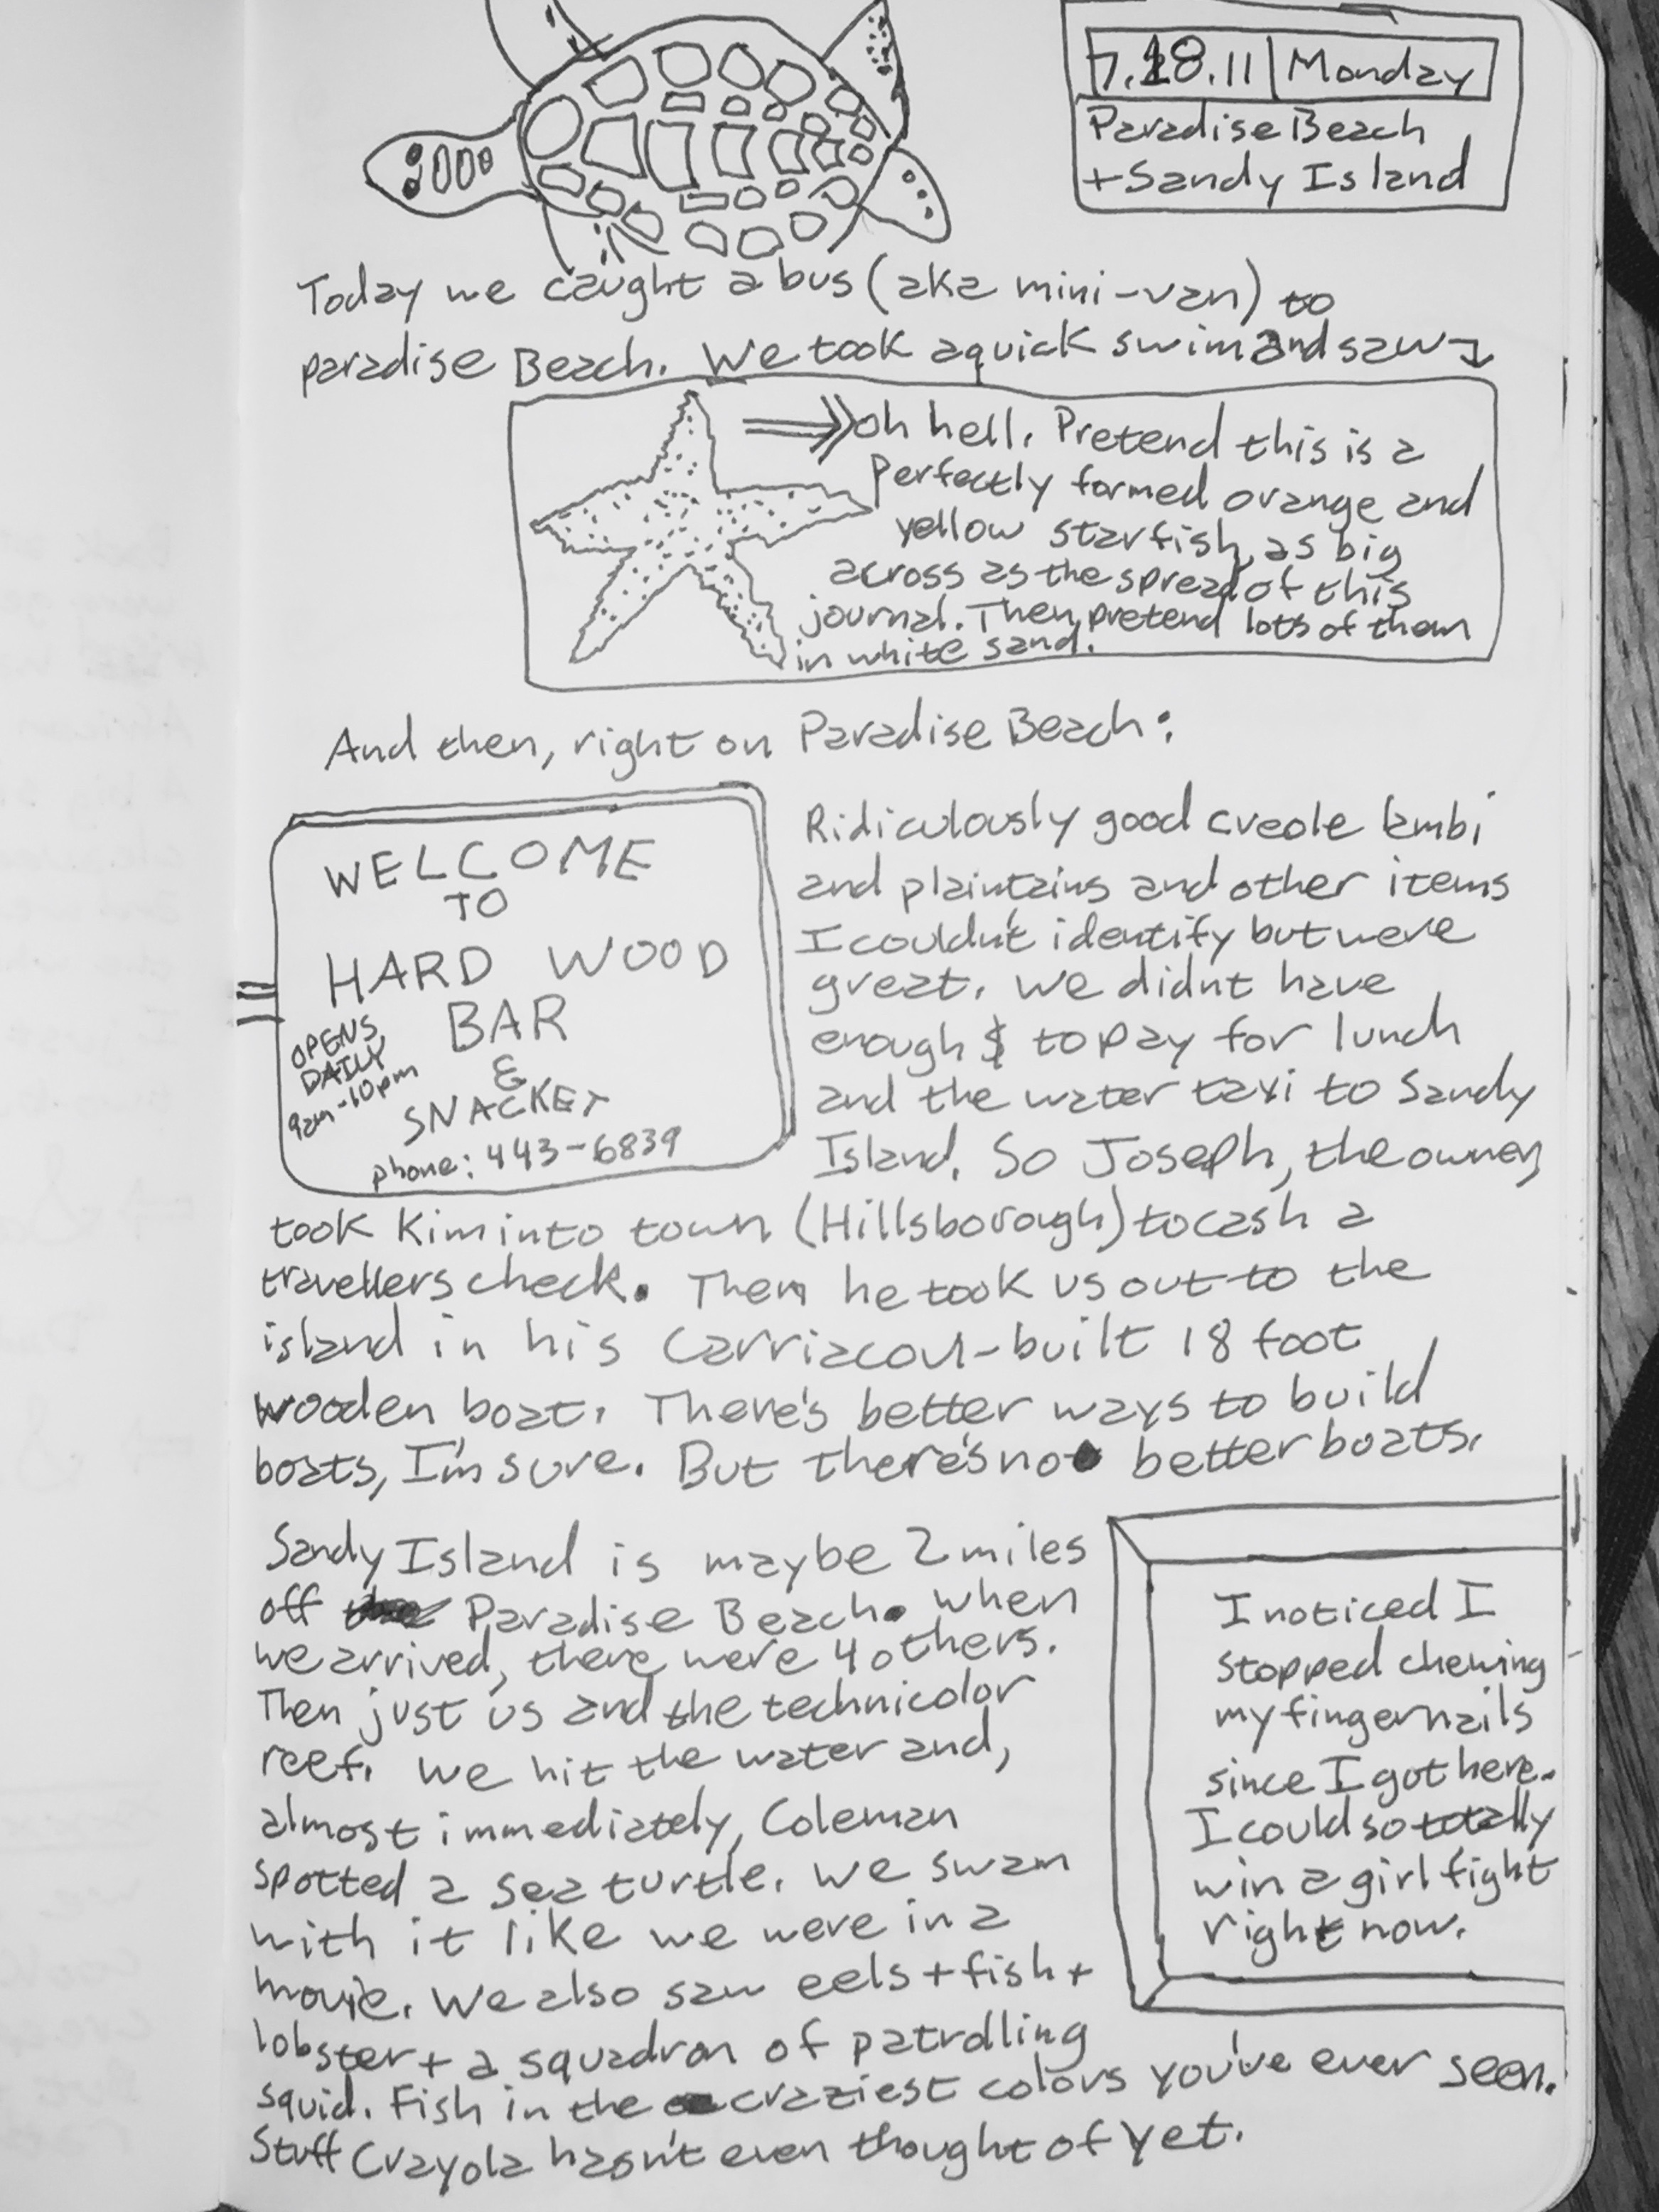 7.18.11 | Monday
Paradise Beach
+ Sandy Island
Today we caught a bus (aka mini-van) to
paradise Beach. We took a quick swim and saw
oh hell. Pretend this is a
Perfectly formed orange and
yellow starfish, as big
across as the spread of this
journal. Then, pretend lots of them
in white sand.
And then, right on Paradise Beach:
WELCOME
TO
HARD WOOD
BAR
&
SNACKET
OPENS
DAILY
9am-10pm
phone: 443-6839
Ridiculously good creole lambi
and plaintains and other items
I couldn't identify but were
great. We didnt have
enough $ to pay for lunch
and the water taxi to Sandy
Island. So Joseph, the owner,
took Kim into town (Hillsborough) to cash a
travellers check. Then he took us out to the
island in his Carriacou-built 18 foot
wooden boat. There's better ways to build
boats, I'm sure. But there's not better boats.
Sandy Island is maybe 2 miles
off Paradise Beach. When
we arrived, there were 4 others.
Then just us and the technicolor
reef. We hit the water and,
almost immediately, Coleman
spotted a sea turtle. We swam
with it like we were in a
movie. We also saw eels + fish +
lobster + a squadron of patrolling
squid. Fish in the craziest colors you've ever seen.
Stuff Crayola hasn't even thought of yet.
I noticed I
stopped chewing
my fingernails
since I got here.
I could so totally
win a girl fight
right now.